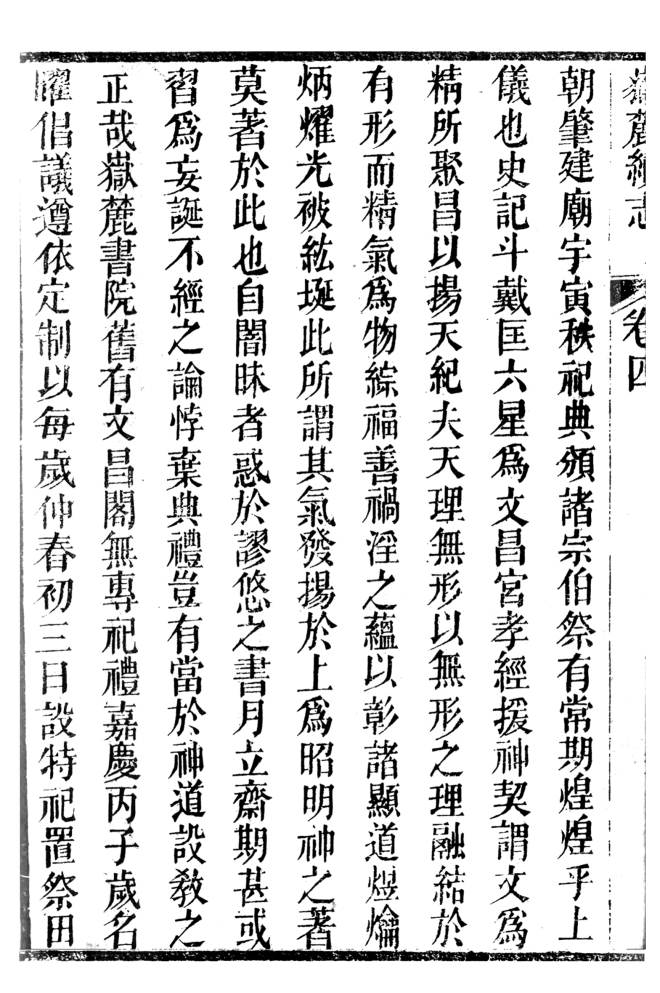 嶽麓續志
卷四
朝肇建廟宇寅秩祀典頒諸宗伯祭有常期煌煌乎上
儀也史記斗戴匡六星爲文昌宮孝經援神契謂文爲
精所聚昌以揚天紀夫天理無形以無形之理融結於
有形而精氣爲物綜福善禍淫之蘊以彰諸顯道熤爚
炳燿光被紘埏此所謂其氣發揚於上爲昭明神之著
莫著於此也自闇昧者惑於謬悠之書月立齋期甚或
習爲妄誕不經之論悖棄典禮豈有當於神道設教之
正哉嶽麓書院舊有文昌閣無專祀禮嘉慶丙子歲名
曜倡議遵依定制以每歲仲春初三日設特祀置祭田